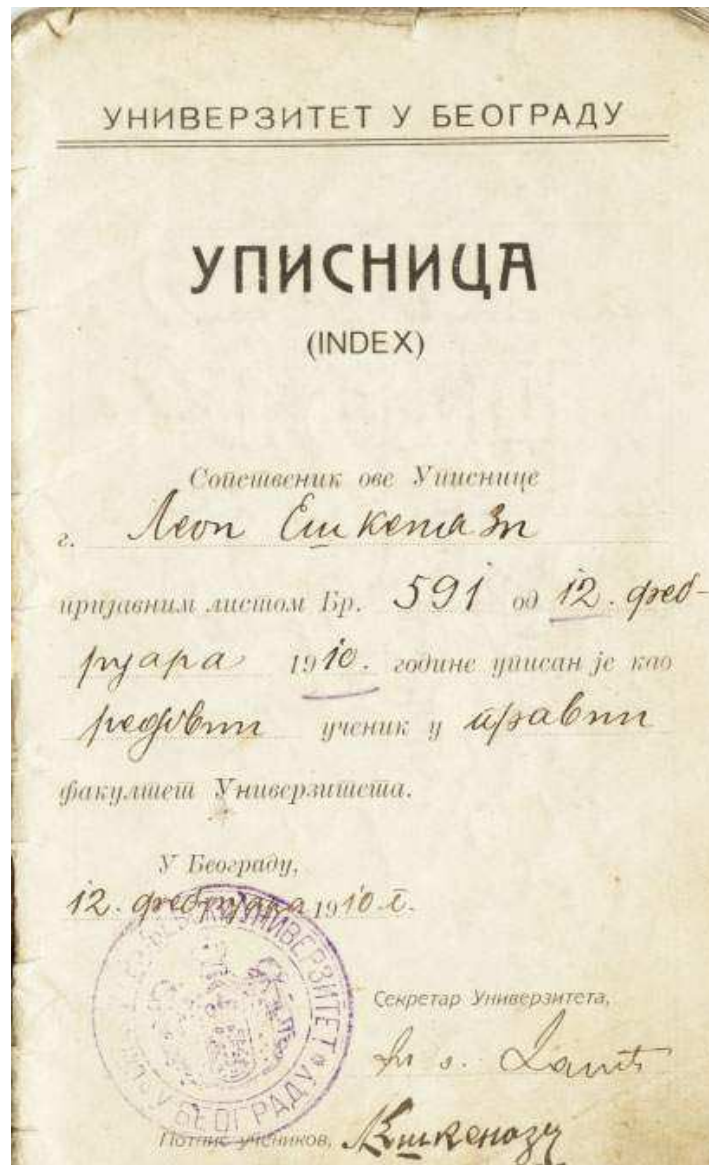 УНИВЕРЗИТЕТ У БЕОГРАДУ
УПИСНИЦА
(INDEX)
Сопственик ове Уписнице
г. Леон Ешкенази
пријавним листом Бр. 591 од 12. феб-
руара 1910. године уписан је као
редовни ученик у правни
факултет Универзитета.
У Београду,
12. фебруара 1910. г.
УНИВЕРЗИТЕТ У БЕОГРАДУ
Секретар Универзитета,
Потпис учеников,